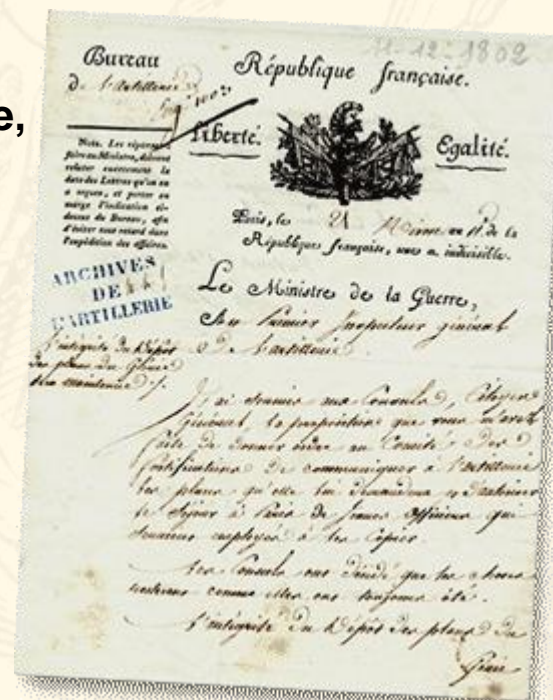 e,
11-12-1802
Bureau
de l'artillerie
République française.
Liberté.
Egalité.
Nota. Les réponses à
faire au Ministre, doivent
relater exactement la
date des Lettres qu'on en
a reçues, et porter en
marge l'indication ci-
dessus du Bureau, afin
d'éviter tout retard dans
l'expédition des affaires.
Paris, le 21 an 11.e de la
République française, une et indivisible.
ARCHIVES
DE
L'ARTILLERIE
Le Ministre de la Guerre,
Au Premier Inspecteur général
de l'artillerie.
L'intégrité du Dépôt
des plans du Génie
sera maintenue
J'ai soumis aux Consuls, Citoyen
Général, la proposition que vous m'avez
faite de donner ordre au Comité des
fortifications de communiquer à l'artillerie
les plans qu'elle lui demandera et d'autoriser
le séjour à Paris de jeunes officiers qui
seraient employés à les copier.
Les Consuls ont décidé que les choses
resteront comme elles ont toujours été.
L'intégrité du Dépôt des plans du
Génie